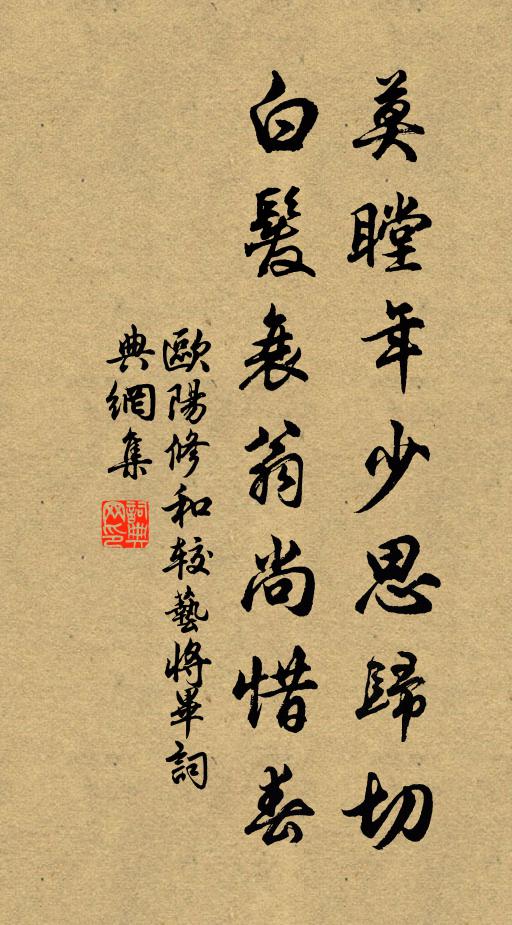 莫瞠年少思歸切
白髮衰翁尚惜春
歐陽修和较藝將畢詞
典網集
詞典
网印